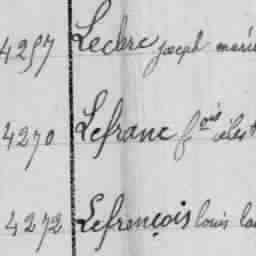 4257 Leclerc joseph marie
4270 Lefranc f.ois céles
4272 Lefrençois louis